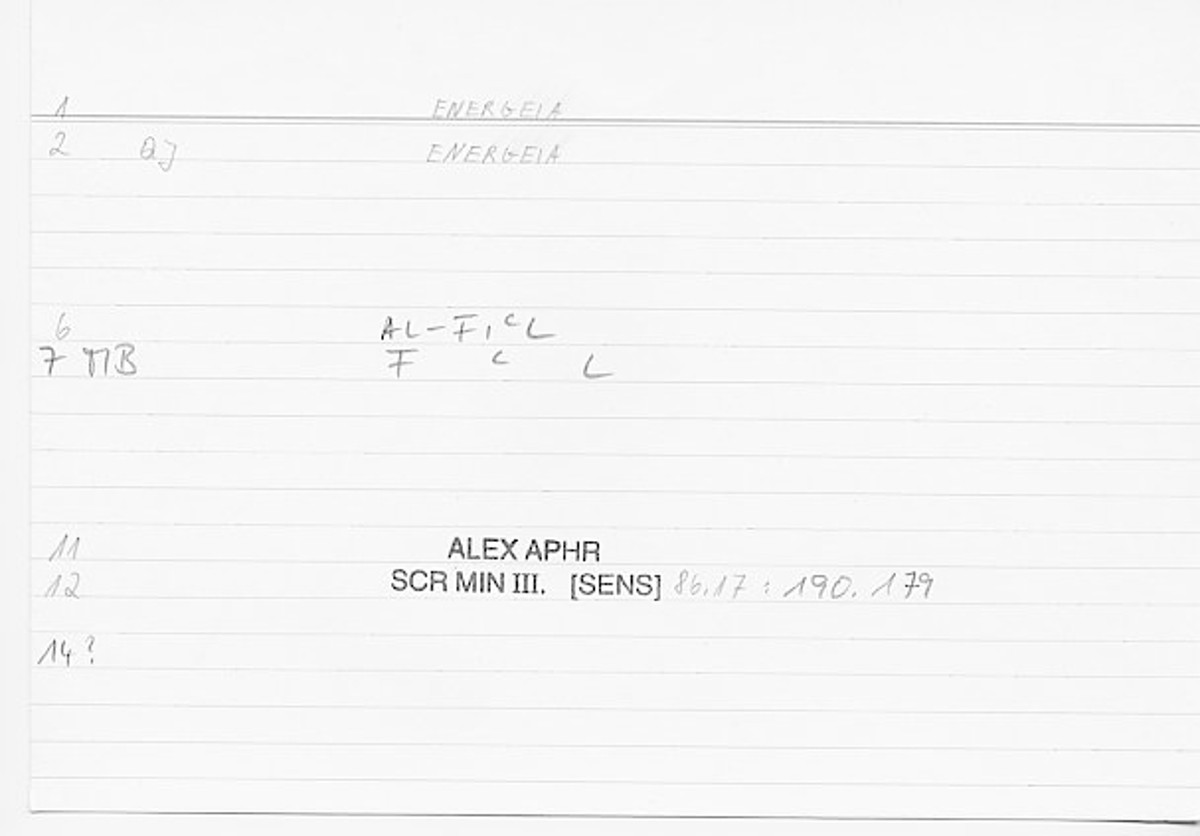 1 ENERGEIA
2 QJ ENERGEIA
6 AL-FIᶜL
7 MB F ᶜ L
11 ALEX APHR
12 SCR MIN III. [SENS] 86.17 : 190.179
14?